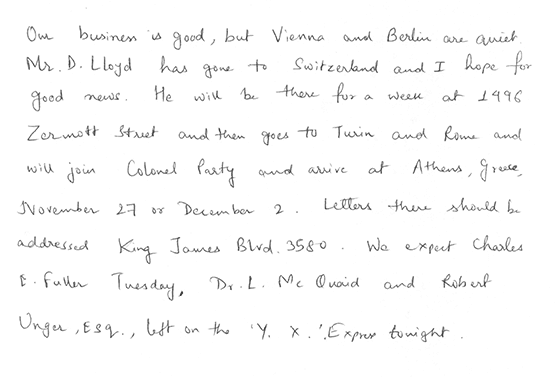 Our business is good, but Vienna and Berlin are quiet.
Mr. D. Lloyd has gone to Switzerland and I hope for
good news. He will be there for a week at 1496
Zermott Street and then goes to Turin and Rome and
will join Colonel Party and arrive at Athens, Greese,
November 27 or December 2. Letters there should be
addressed King James Blvd. 3580. We expect Charles
E. Fuller Tuesday, Dr. L. Mc Quaid and Robert
Unger, ESq., left on the 'Y. X.' Express tonight.